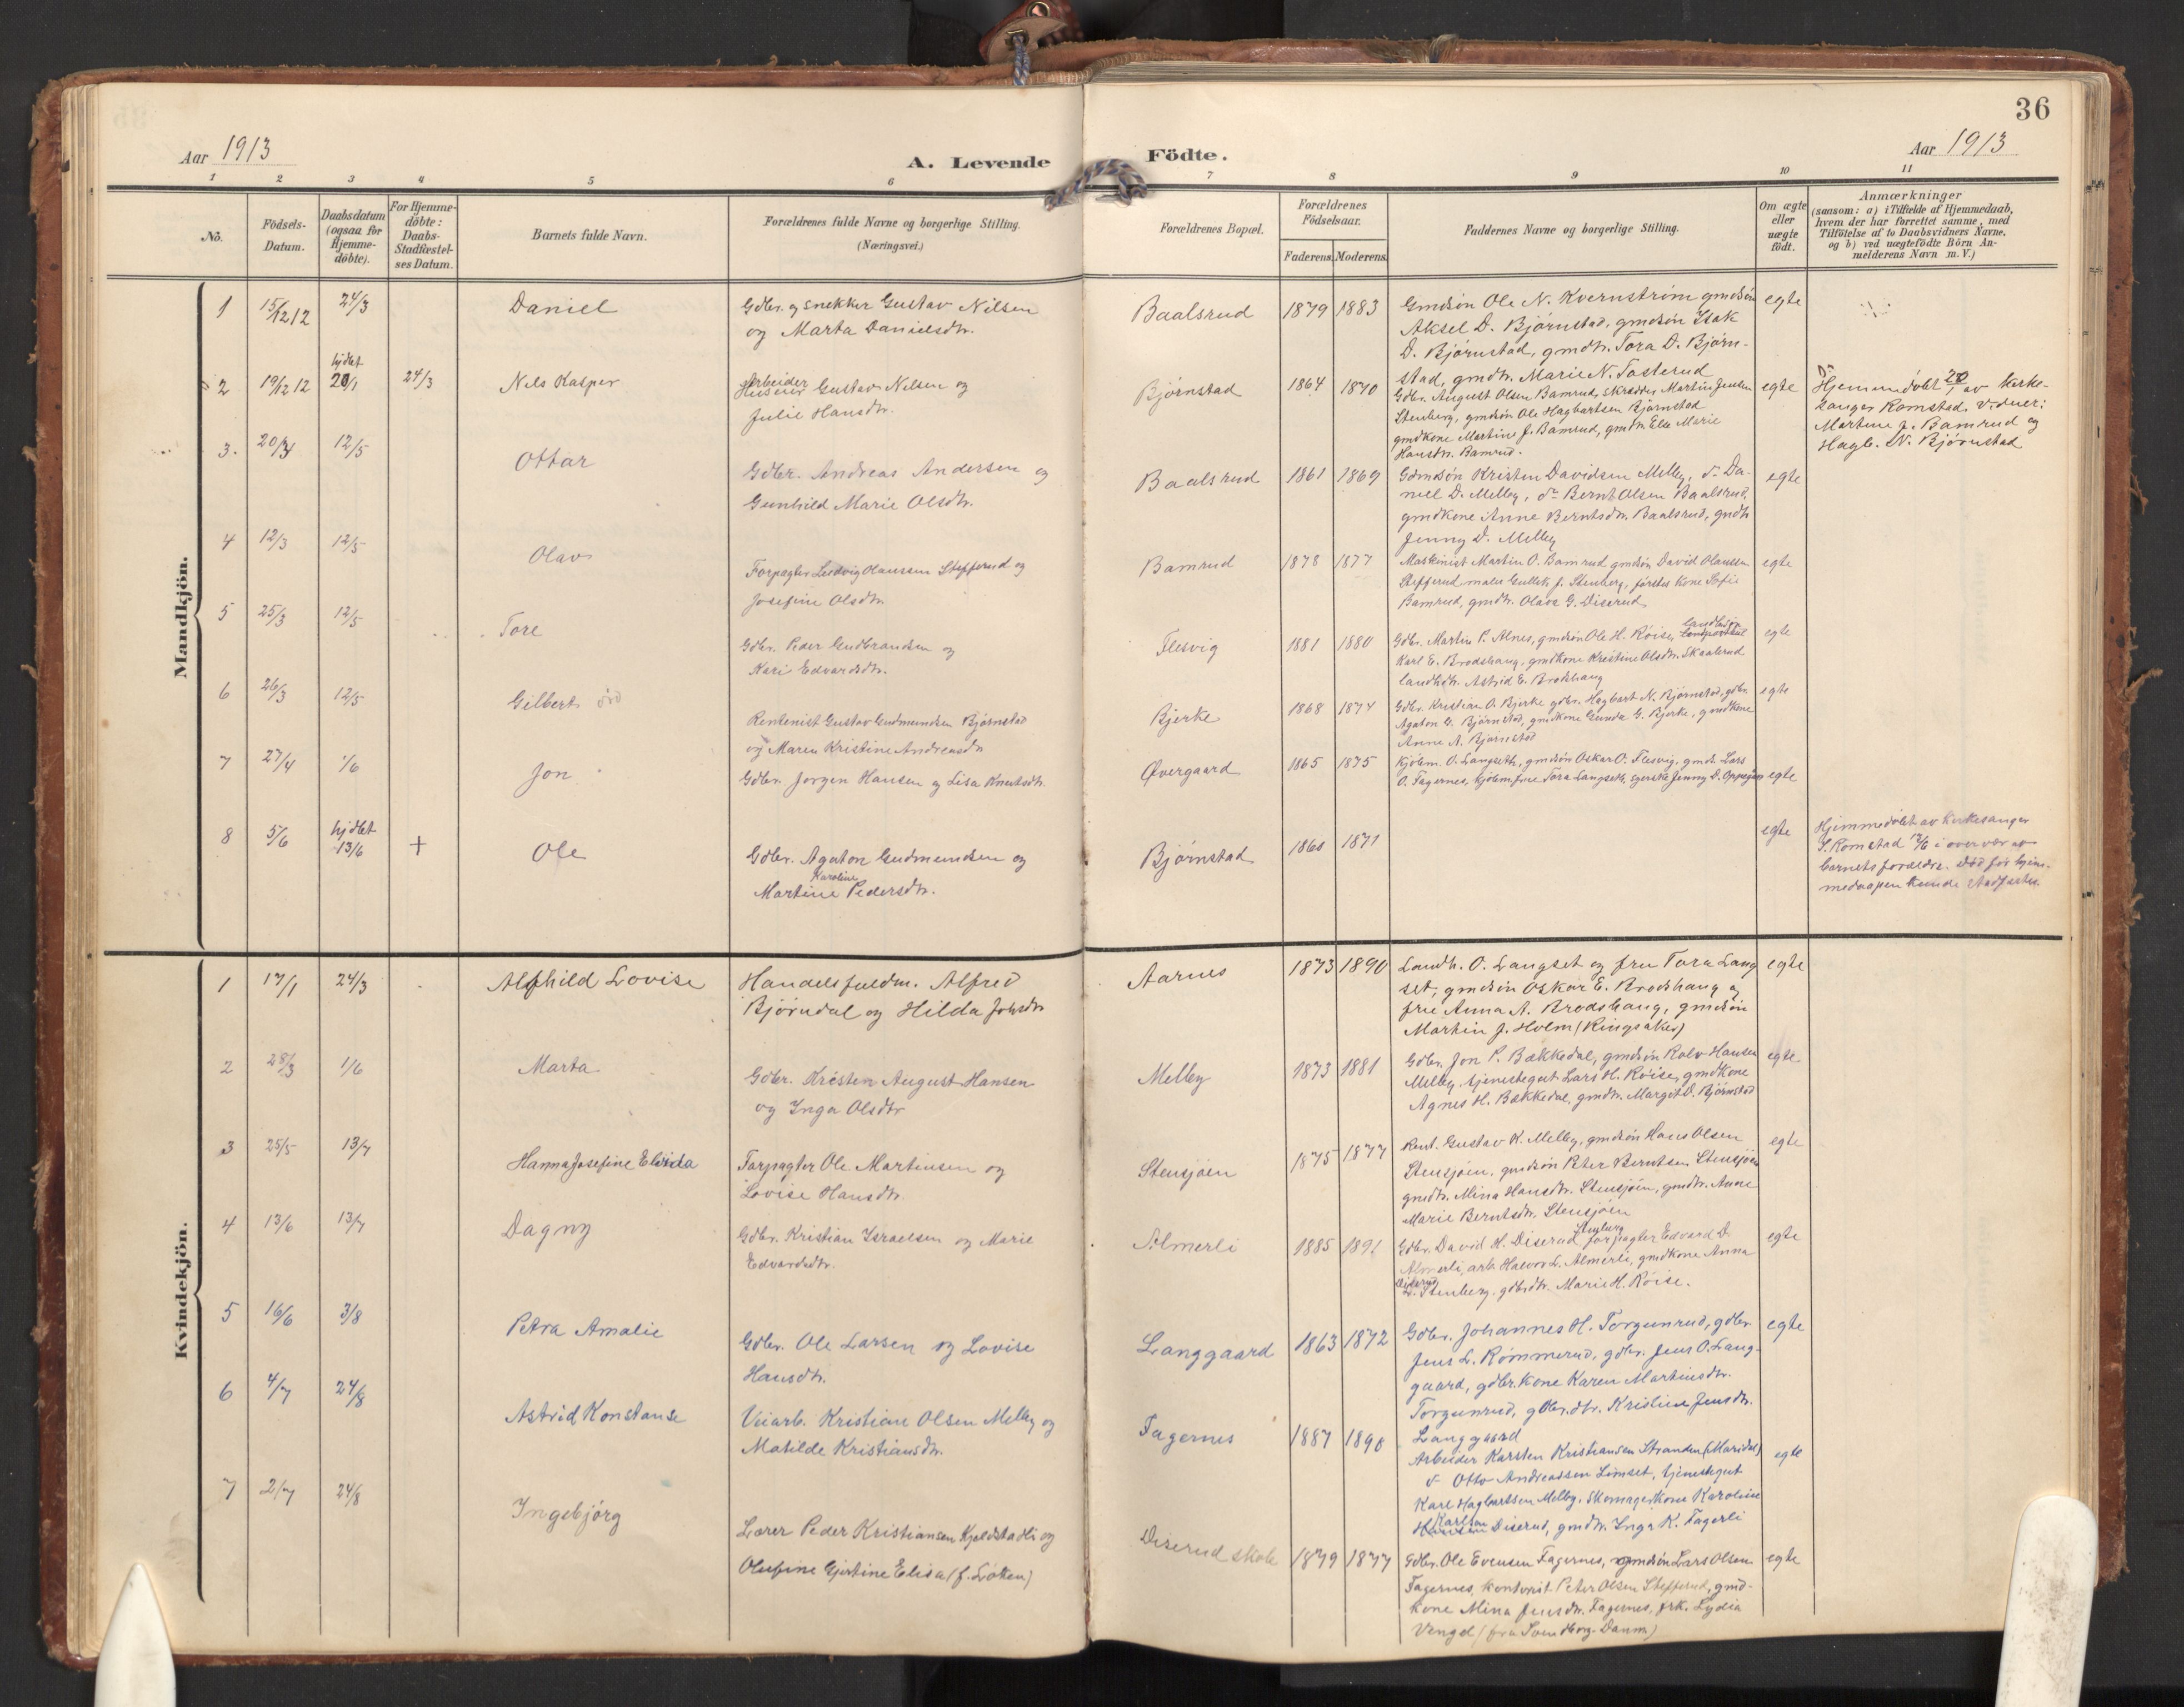 36
Aar 1913
A. Levende Födte.
Aar 1913
1 2 3 4 5 6 7 8 9 10 11
No.
Födsels-Datum.
Daabsdatum (ogsaa for Hjemme-döbte).
For Hjemme-döbte: Daabs-Stadfæstel-ses Datum.
Barnets fulde Navn.
Forældrenes fulde Navne og borgerlige Stilling.
(Næringsvei.)
Forældrenes Bopæl.
Forældrenes Födselsaar.
Faderens. Moderens.
Faddernes Navne og borgerlige Stilling.
Om ægte eller uægte födt.
Anmærkninger
(saasom: a) i Tilfælde af Hjemmedaab,
hvem der har forrettet samme, med
Tilföielse af to Daabsvidners Navne,
og b) ved uægtefödte Börn An-
melderens Navn m. V.)
Mandkjön.
1 15/12 12 24/3 Daniel
Gdbr. og snekker Gustav Nilsen
og Marta Danielsdtr.
Baalsrud 1879 1883
Gmdsön Ole N. Kvernström gmdsön
Aksel D. Björnstad, gmdsön Isak
D. Björnstad, gmdtr. Tora D. Björn-
stad, gmdtr. Marie N. Tosterud
egte
2 19/12 12 hjdbt 24/3 Nils Kasper
Arbeider Gustav Nilsen og
Julie Hansdtr.
Björnstad 1864 1870
Gdbr. August Olsen Bamrud, skrædder Martin Jensen
Stenberg, gmdsön Ole Hagbartsen Björnstad
gmdkone Martine J. Bamrud, gmdtr. Else Marie
Hansdtr. Bamrud.
egte
Hjemmedöbt av kirke-
sanger Romstad. Vidner:
Martine J. Bamrud og
Hagb. N. Björnstad
3. 12/5 Ottar
Gdbr. Andreas Andersen og
Gunhild Marie Olsdtr.
Baalsrud 1861 1869
Gdmdsön Kristen Davidsen Melby, do Da-
niel D. Melby, do Bernt Olsen Baalsrud,
gmdkone Anne Berntsdtr. Baalsrud, gmdtr
Jenny D. Melby
egte
4 12/3 12/5 Olav
Forpagter Ludvig Olaussen Stefferud og
Josefine Olsdtr.
Bamrud 1878 1877
Maskinist Martin O. Bamrud gmdsön David Olaussen
Stefferud, maler Gullik J. Stenberg, forster kone Sofie
Bamrud, gmdtr. Olava G. Diserud
egte
5 25/3 12/5 Tore
Gdbr. Peder Gudbrandsen og
Kari Edvardsdtr.
Flesvig 1881 1880
Gdbr. Martin P. Alnes, gmdsön Ole H. Röise,
Karl E. Brodshaug, gmdkone Kristine Olsdtr. Skaalerud
landhdtr. Astrid E. Brodshaug
egte
6 26/3 12/5 Gilbert
Rentenist Gustav Gudmundsen Björnstad
og Maren Kristine Andreasdtr
Bjerke 1868 1874
Gdbr. Kristian O. Bjerke gdbr. Hagbart N. Björnstad, gdbr.
Agaton G. Björnstad, gmdkone Gunda G. Bjerke, gmdkone
Anne A. Björnstad
egte
7 27/4 1/6 Jon
Gdbr. Jørgen Hansen og Lisa Knutsdtr.
Øvergaard 1865 1875
Kjöbm. O. Langseth, gmdsön Oskar O. Flesvig, gmds. Lars
O. Fagernes, kjöbm.frue Tora Langseth, syerske Jenny D. Oppegaard
egte
8 5/6 hjdbt 13/6 + Ole
Gdbr. Agaton Gudmundsen og
Karoline
Martine Pedersdtr.
Björnstad 1868 1871
egte
Hjemmedöbt av kirkesanger
S. Romstad 13/6 i overvær av
barnets forældre. Död för hjem-
medaapen kunde stadfestes.
Kvindekjön.
1 17/1 24/3 Alfhild Lovise
Handelsfuldm. Alfred
Björndal og Hilda Johsdtr
Aarnes 1873 1890
Landh. O. Langset og fru Tora Lang
set, gmdsön Oskar E. Brodshaug og
frue Anna A. Brodshaug, gmdsön
Martin J. Holm (Ringsaker)
egte
2 28/3 1/6 Marta
Gdbr. Kristen August Hansen
og Inga Olsdtr
Melby 1873 1881
Gdbr. Jon P. Bækkedal, gmdsön Rolv Hansen
Melby, tjenestegut Lars H. Röise, gmdkone
Agnes H. Bækkedal, gmdtr. Margit D. Björnstad
egte
3 25/5 13/7 Hanna Josefine Elvida
Forpagter Ole Martinsen og
Lovise Hansdtr.
Stensjöen 1875 1877
Rent. Gustav K. Melby, gmdsön Hans Olsen
Stensjöen, gmdsön Peter Berntsen Stensjöen
gmdtr. Mina Hansdtr. Stensjöen, gmdtr. Anne
Marie Berntsdtr. Stensjöen
egte
4 13/6 13/7 Dagny
Gdbr. Kristian Israelsen og Marie
Edvardsdtr.
Almerli 1885 1891
Gdbr. David H. Diserud, forpagter Edvard D. Stenberg
Almerli, arb. Halvor L. Almerli, gmdkone Anna
D. Stenberg, gdbrdtr. Marie H. Röise.
egte
5 16/6 3/8 Petra Amalie
Gdbr. Ole Larsen og Lovise
Hansdtr.
Langgaard 1863 1872
Gdbr. Johannes H. Torgunrud, gdbr
Jens L. Römmerud, gdbr. Jens O. Lang-
gaard, gdbr.kone Karen Martinsdtr.
Torgunrud, gdbr.dtr. Kristine Jensdtr.
Langgaard
egte
6 4/7 24/8 Astrid Konstanse
Veiarb. Kristian Olsen Melby og
Matilde Kristiansdtr.
Fagernes 1887 1890
Arbeider Karsten Kristiansen Stranden (Maridal)
do Otto Andreassen Limset, tjenestegut
Karl Hagbartsen Melby, Skomagerkone Karoline
Karlsen Diserud, gmdtr. Inga K. Fagerli
egte
7 2/7 24/8 Ingebjörg
Lærer Peder Kristiansen Kjeldstadli og
Olufine Gjertine Elisa (f. Löken)
Diserud skole 1879 1877
Gdbr. Ole Evensen Fagernes, gmdsön Lars Olsen
Fagernes, kontorist Peter Olsen Stefferud, gmd-
kone Mina Jensdtr. Fagernes, frk. Lydia
Vengel (fra Svendborg. Danm)
egte